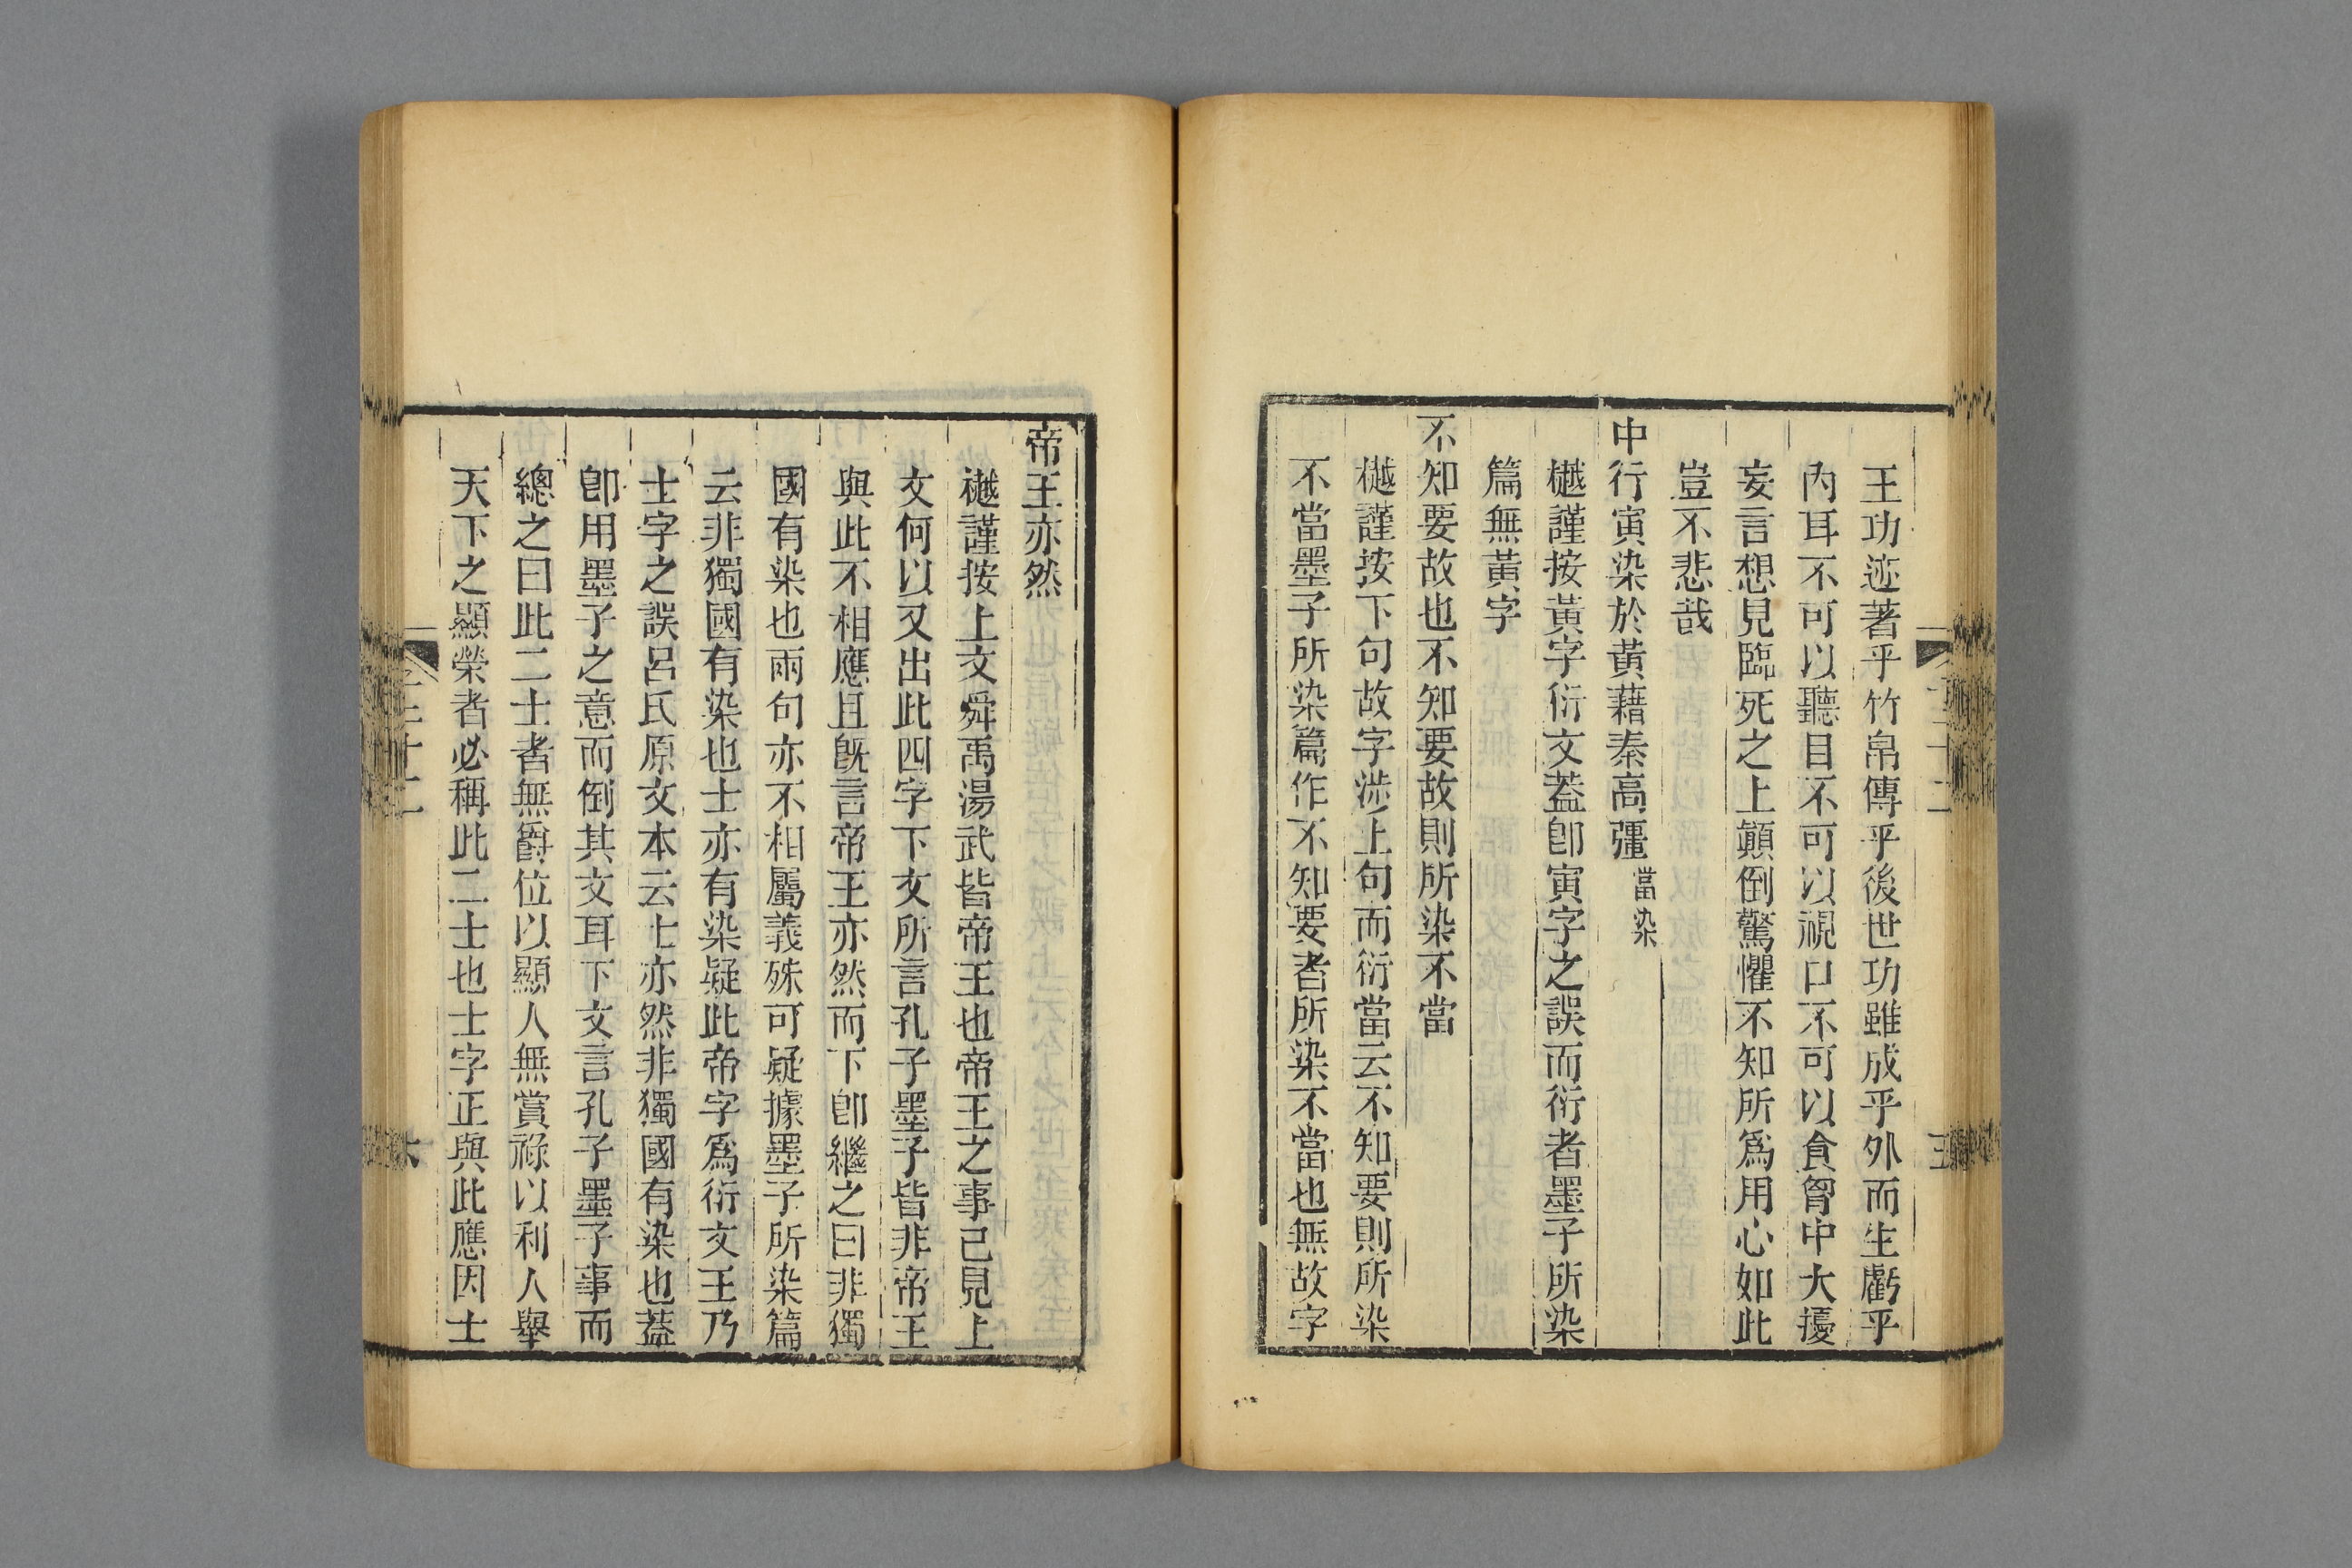 王功迹著乎竹帛傳乎後世功雖成乎外而生虧乎
內耳不可以聽目不可以視口不可以食胷中大擾
妄言想見臨死之上顚倒驚懼不知所爲用心如此
豈不悲哉
中行寅染於黃藉秦高彊當染
樾謹按黃字衍文蓋卽寅字之誤而衍者墨子所染
篇無黃字
不知要故也不知要故則所染不當
樾謹按下句故字涉上句而衍當云不知要則所染
不當墨子所染篇作不知要者所染不當也無故字
帝王亦然
樾謹按上文舜禹湯武皆帝王也帝王之事已見上
文何以又出此四字下文所言孔子墨子皆非帝王
與此不相應且旣言帝王亦然而下卽繼之曰非獨
國有染也兩句亦不相屬義殊可疑據墨子所染篇
云非獨國有染也士亦有染疑此帝字爲衍文王乃
士字之誤呂氏原文本云士亦然非獨國有染也蓋
卽用墨子之意而倒其文耳下文言孔子墨子事而
總之曰此二士者無爵位以顯人無賞祿以利人舉
天下之顯榮者必稱此二士也士字正與此應因士